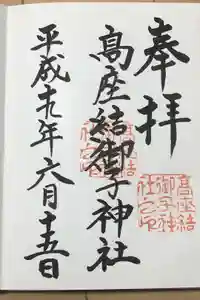 奉拝
髙座結御子神社
平成十九年六月十五日
髙座結
御子神
社之印